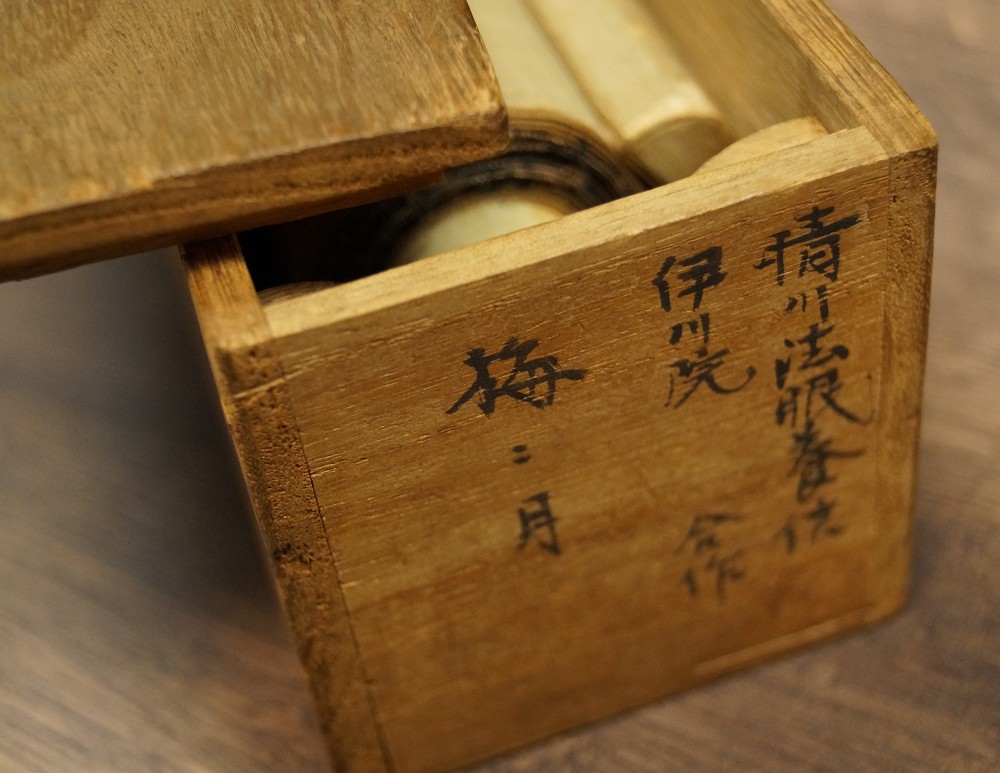 晴川法眼養信
伊川院 合作
梅ニ月